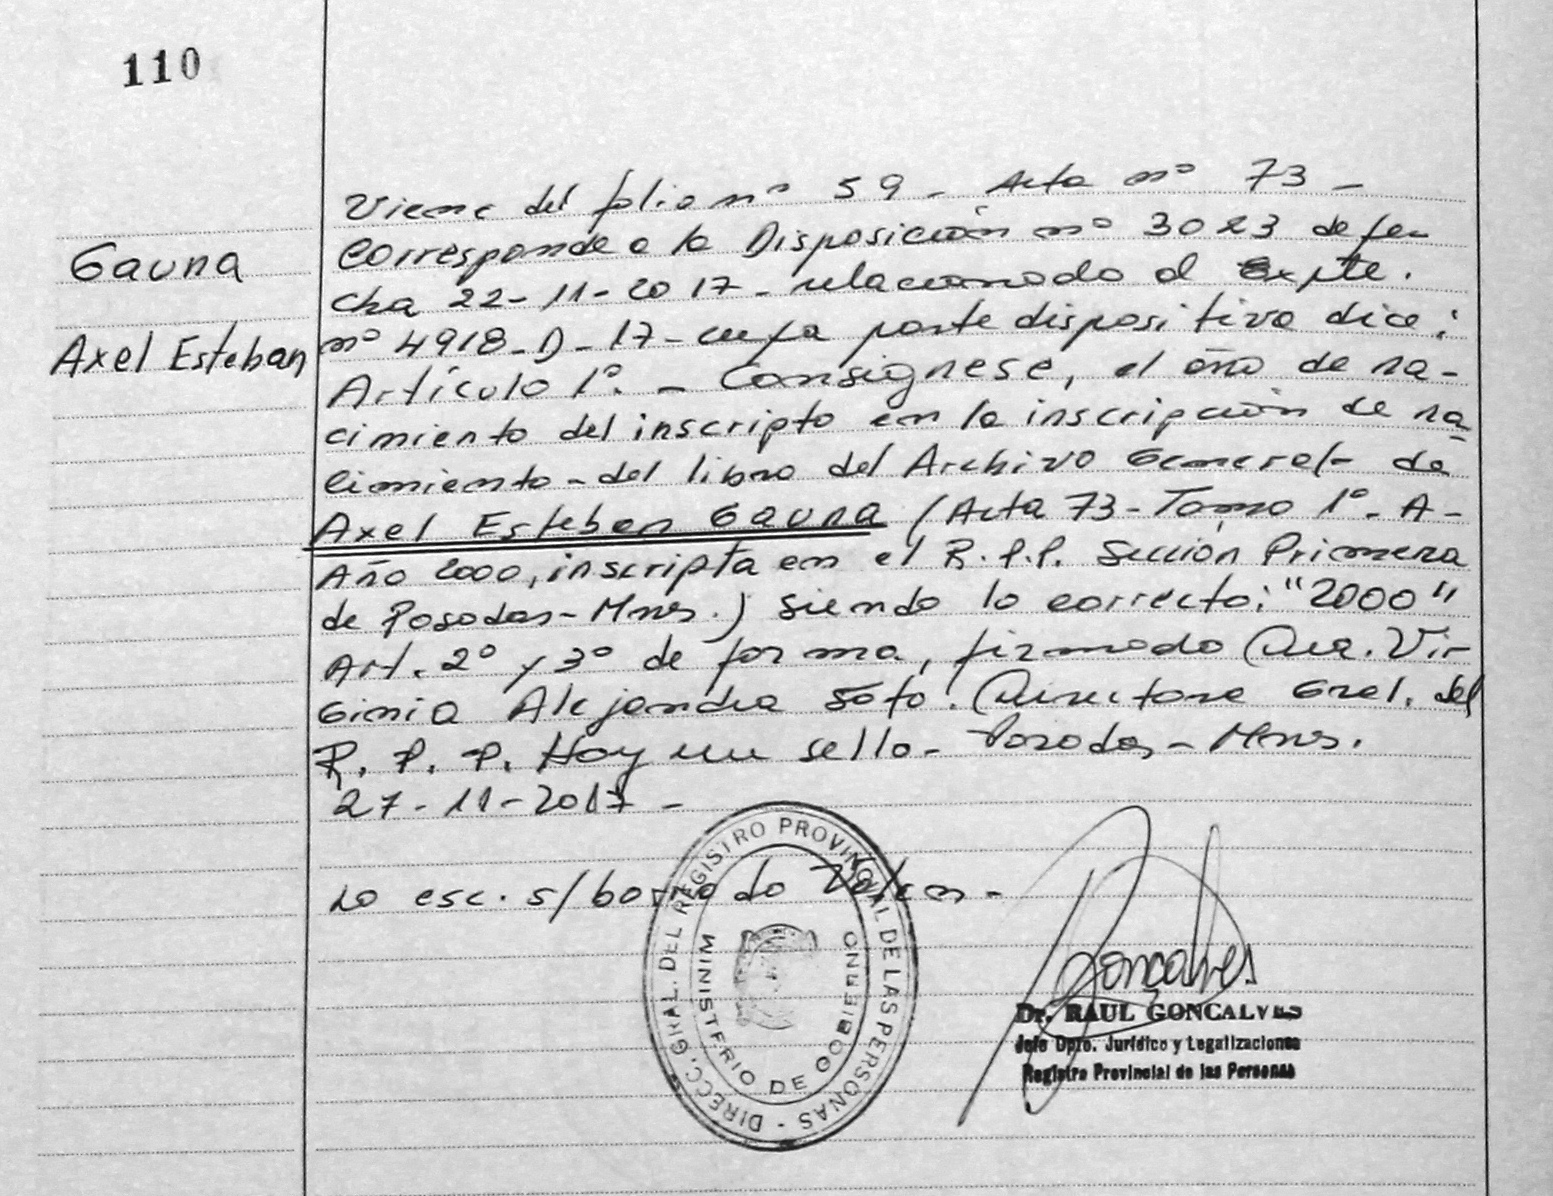 110
Gauna
Axel Esteban
Viene del folio nº 59 - Acta nº 73 -
Corresponde a la Disposición nº 3023 de fe-
cha 22-11-2017 - relacionado al Expte.
nº 4918-D-17- cuya parte dispositiva dice:
Artículo 1º. - Consignese, el año de na-
cimiento del inscripto en la inscripción de na-
cimiento - del libro del Archivo General - de
Axel Esteban Gauna (Acta 73 - Tomo 1º - A -
Año 2000, inscripta en el R.P.P. Sección Primera
de Posadas - Mnes.) siendo lo correcto: "2000"
Art. 2º y 3º de forma, firmado Dra. Vir-
ginia Alejandra Soto. Directora Gral. del
R.P.P. Hay un sello - Posadas - Mnes.
27-11-2017 -
Lo esc. s/borrado Valen -
DIRECC. GRAL. DEL REGISTRO PROVINCIAL DE LAS PERSONAS -
MINISTERIO DE GOBIERNO
Gonçalves
Dr. RAUL GONCALVES
Jefe Dpto. Jurídico y Legalizaciones
Registro Provincial de las Personas